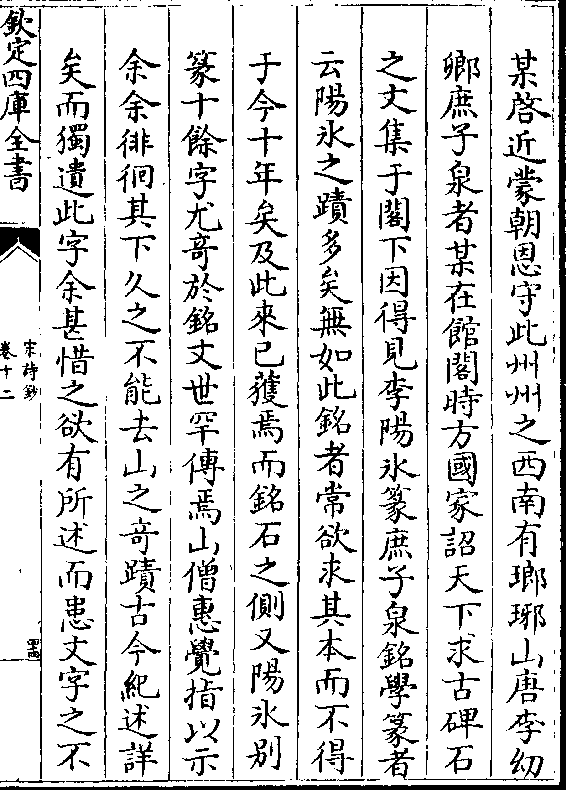 某啓近蒙朝恩守此州州之西南有瑯琊山唐李幼
卿庶子泉者某在館閣時方國家詔天下求古碑石
之文集于閣下因得見李陽氷篆庶子泉銘學篆者
云陽氷之蹟多矣無如此銘者常欲求其本而不得
于今十年矣及此來已獲焉而銘石之側又陽氷别
篆十餘字尤奇於銘文世罕傳焉山僧惠覺指以示
余余徘徊其下久之不能去山之奇蹟古今紀述詳
矣而獨遺此字余甚惜之欲有所述而患文字之不
欽定四庫全書
宋詩鈔
卷十二